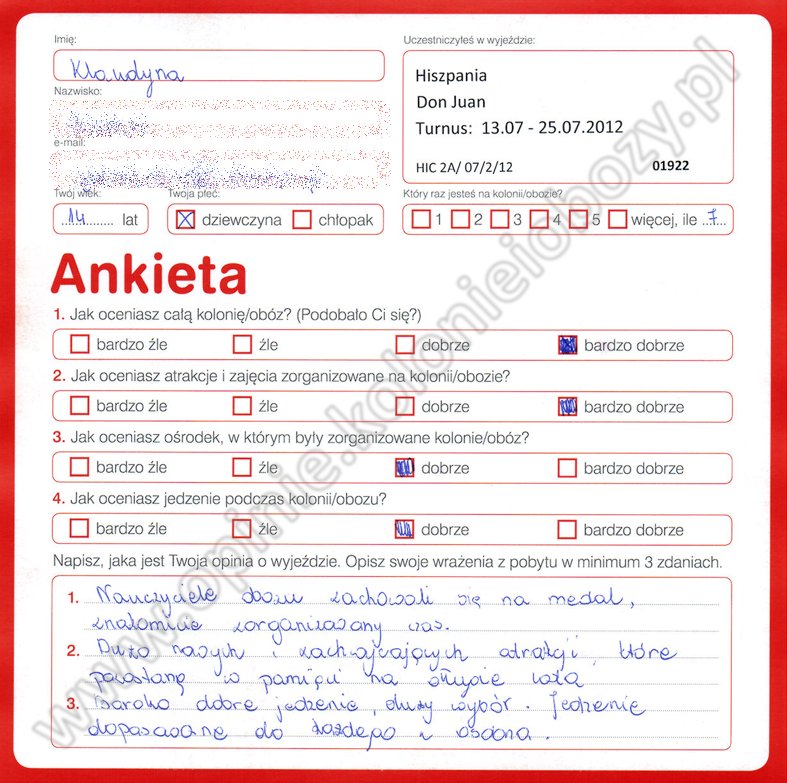 Imię:
Klaudyna
Uczestniczyłeś w wyjeździe:
Hiszpania
Don Juan
Turnus: 13.07 - 25.07.2012
HIC 2A/ 07/2/12 01922
Nazwisko:
e-mail:
Twój wiek:
14 lat
Twoja płeć:
dziewczyna chłopak
Który raz jesteś na kolonii/obozie?
1 2 3 4 5 więcej, ile 7
Ankieta
1. Jak oceniasz całą kolonię/obóz? (Podobało Ci się?)
bardzo źle źle dobrze bardzo dobrze
2. Jak oceniasz atrakcje i zajęcia zorganizowane na kolonii/obozie?
bardzo źle źle dobrze bardzo dobrze
3. Jak oceniasz ośrodek, w którym były zorganizowane kolonie/obóz?
bardzo źle źle dobrze bardzo dobrze
4. Jak oceniasz jedzenie podczas kolonii/obozu?
bardzo źle źle dobrze bardzo dobrze
Napisz, jaka jest Twoja opinia o wyjeździe. Opisz swoje wrażenia z pobytu w minimum 3 zdaniach.
1. Nauczyciele obozu zachowali się na medal,
znakomicie zorganizowany czas.
2. Dużo nowych i zachwycających atrakcji, które
pozostaną w pamięci na długie lata
3. Bardzo dobre jedzenie, duży wybór. Jedzenie
dopasowane do każdego
www.opinie.kolonieiobozy.pl